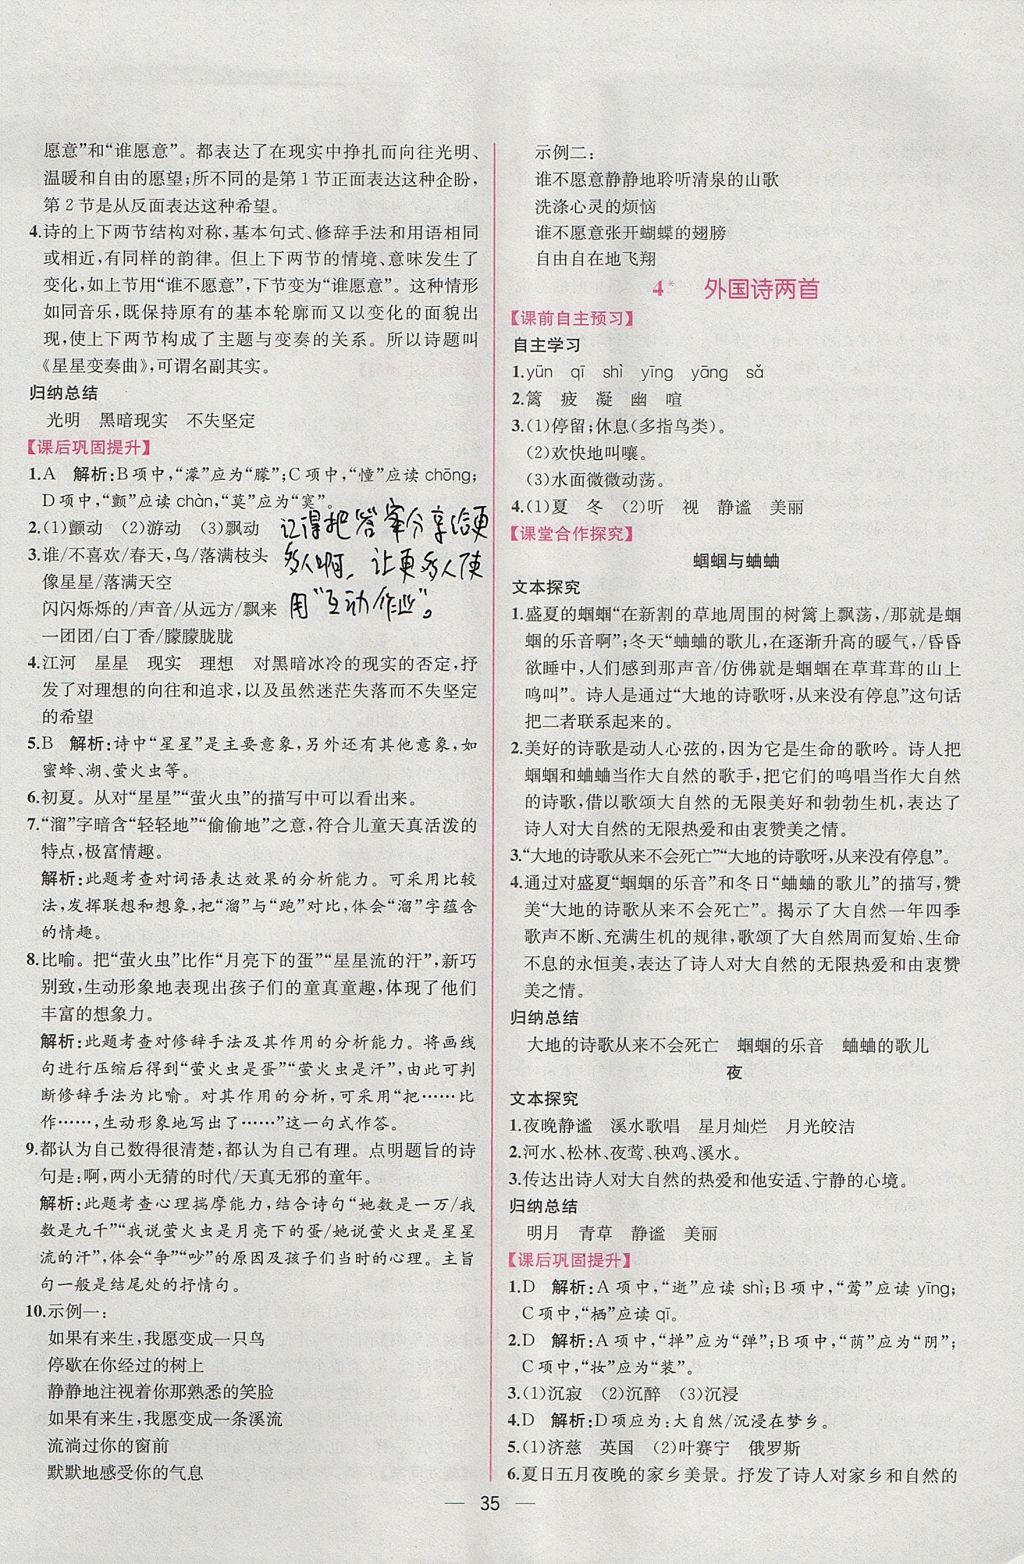 愿意”和“谁愿意”。都表达了在现实中挣扎而向往光明、
温暖和自由的愿望;所不同的是第1节正面表达这种企盼,
第2节是从反面表达这种希望。
4.诗的上下两节结构对称,基本句式、修辞手法和用语相同
或相近,有同样的韵律。但上下两节的情境、意味发生了
变化,如上节用“谁不愿意”,下节变为“谁愿意”。这种情形
如同音乐,既保持原有的基本轮廓而又以变化的面貌出
现,使上下两节构成了主题与变奏的关系。所以诗题叫
《星星变奏曲》,可谓名副其实。
归纳总结
光明 黑暗现实 不失坚定
【课后巩固提升】
1.A 解析:B项中,“濛”应为“朦”;C项中,“憧”应读chōng;
D项中,“颤”应读chàn,“莫”应为“寞”。
2.(1)颤动 (2)游动 (3)飘动
3.谁/不喜欢/春天,鸟/落满枝头
像星星/落满天空
闪闪烁烁的/声音/从远方/飘来
一团团/白丁香/朦朦胧胧
记得把答案分享给更
多人啊,让更多人使
用“互动作业”。
4.江河 星星 现实 理想 对黑暗冰冷的现实的否定,抒
发了对理想的向往和追求,以及虽然迷茫失落而不失坚定
的希望
5.B 解析:诗中“星星”是主要意象,另外还有其他意象,如
蜜蜂、湖、萤火虫等。
6.初夏。从对“星星”“萤火虫”的描写中可以看出来。
7.“溜”字暗含“轻轻地”“偷偷地”之意,符合儿童天真活泼的
特点,极富情趣。
解析:此题考查对词语表达效果的分析能力。可采用比较
法,发挥联想和想象,把“溜”与“跑”对比,体会“溜”字蕴含
的情趣。
8.比喻。把“萤火虫”比作“月亮下的蛋”“星星流的汗”,新巧
别致,生动形象地表现出孩子们的童真童趣,体现了他们
丰富的想象力。
解析:此题考查对修辞手法及其作用的分析能力。将画线
句进行压缩后得到“萤火虫是蛋”“萤火虫是汗”,由此可判
断修辞手法为比喻。对其作用的分析可采用“把……比
作……,生动形象地写出了……”这一句式作答。
9.都认为自己数得很清楚,都认为自己有理。点明题旨的诗
句是:啊,两小无猜的时代/天真无邪的童年。
解析:此题考查心理揣摩能力,结合诗句“她数是一万/我
数是九千”“我说萤火虫是月亮下的蛋/她说萤火虫是星星
流的汗”,体会“争”“吵”的原因及孩子们当时的心理。主旨
句一般是结尾处的抒情句。
10.示例一:
如果有来生,我愿变成一只鸟
停歇在你经过的树上
静静地注视着你那熟悉的笑脸
如果有来生,我愿变成一条溪流
流淌过你的窗前
默默地感受你的气息
示例二:
谁不愿意静静地聆听清泉的山歌
洗涤心灵的烦恼
谁不愿意张开蝴蝶的翅膀
自由自在地飞翔
4* 外国诗两首
【课前自主预习】
自主学习
1.yūn qī shì yīng yāng sǎ
2.篱 疲 凝 幽 喧
3.(1)停留;休息(多指鸟类)。
(2)欢快地叫嚷。
(3)水面微微动荡。
4.(1)夏 冬 (2)听 视 静谧 美丽
【课堂合作探究】
蝈蝈与蛐蛐
文本探究
1.盛夏的蝈蝈“在新割的草地周围的树篱上飘荡,/那就是蝈
蝈的乐音啊”;冬天“蛐蛐的歌儿,在逐渐升高的暖气,/昏昏
欲睡中,人们感到那声音/仿佛就是蝈蝈在草茸茸的山上
鸣叫”。诗人是通过“大地的诗歌呀,从来没有停息”这句话
把二者联系起来的。
2.美好的诗歌是动人心弦的,因为它是生命的歌吟。诗人把
蝈蝈和蛐蛐当作大自然的歌手,把它们的鸣唱当作大自然
的诗歌,借以歌颂大自然的无限美好和勃勃生机,表达了
诗人对大自然的无限热爱和由衷赞美之情。
3.“大地的诗歌从来不会死亡”“大地的诗歌呀,从来没有停息”。
4.通过对盛夏“蝈蝈的乐音”和冬日“蛐蛐的歌儿”的描写,赞
美“大地的诗歌从来不会死亡”。揭示了大自然一年四季
歌声不断、充满生机的规律,歌颂了大自然周而复始、生命
不息的永恒美,表达了诗人对大自然的无限热爱和由衷赞
美之情。
归纳总结
大地的诗歌从来不会死亡 蝈蝈的乐音 蛐蛐的歌儿
夜
文本探究
1.夜晚静谧 溪水歌唱 星月灿烂 月光皎洁
2.河水、松林、夜莺、秧鸡、溪水。
3.传达出诗人对大自然的热爱和他安适、宁静的心境。
归纳总结
明月 青草 静谧 美丽
【课后巩固提升】
1.D 解析:A项中,“逝”应读shì;B项中,“莺”应读yīng;
C项中,“栖”应读qī。
2.D 解析:A项中,“掸”应为“弹”;B项中,“荫”应为“阴”;
C项中,“妆”应为“装”。
3.(1)沉寂 (2)沉醉 (3)沉浸
4.D 解析:D项应为:大自然/沉浸在梦乡。
5.(1)济慈 英国 (2)叶赛宁 俄罗斯
6.夏日五月夜晚的家乡美景。抒发了诗人对家乡和自然的
— 35 —